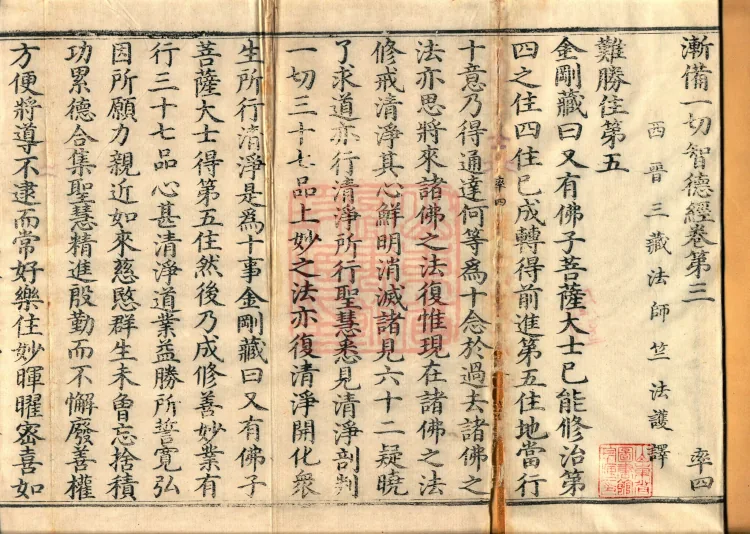 漸備一切智德經卷第三　率四
西晉三藏法師竺法護譯
難勝住第五
金剛藏曰又有佛子菩薩大士已能修治第
四之住四住已成轉得前進第五住地當行
率四
十意乃得通達何等為十念於過去諸佛之
法亦思將來諸佛之法復惟現在諸佛之法
修戒清淨其心鮮明消滅諸見六十二疑曉
了求道亦行清淨所行聖慧悉見清淨剖判
一切三十七品上妙之法亦復清淨開化衆
生所行清淨是為十事金剛藏曰又有佛子
菩薩大士得第五住然後乃成修善妙業有
行三十七品心甚清淨道業益勝所誓寬弘
因所願力親近如來慈愍群生未曾忘捨積
功累德合集聖慧精進殷勤而不懈廢善權
方便將導不逮而常好樂住妙暉曜密喜如